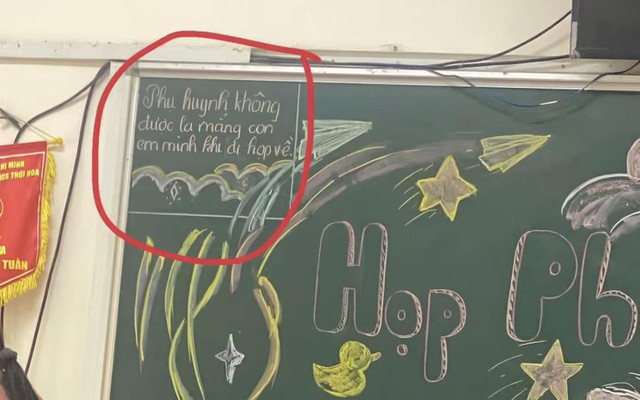 Phụ huynh không
được la mắng con
em mình khi đi họp về
Họp Ph
MINH
THỚI HÒA
TUẦN